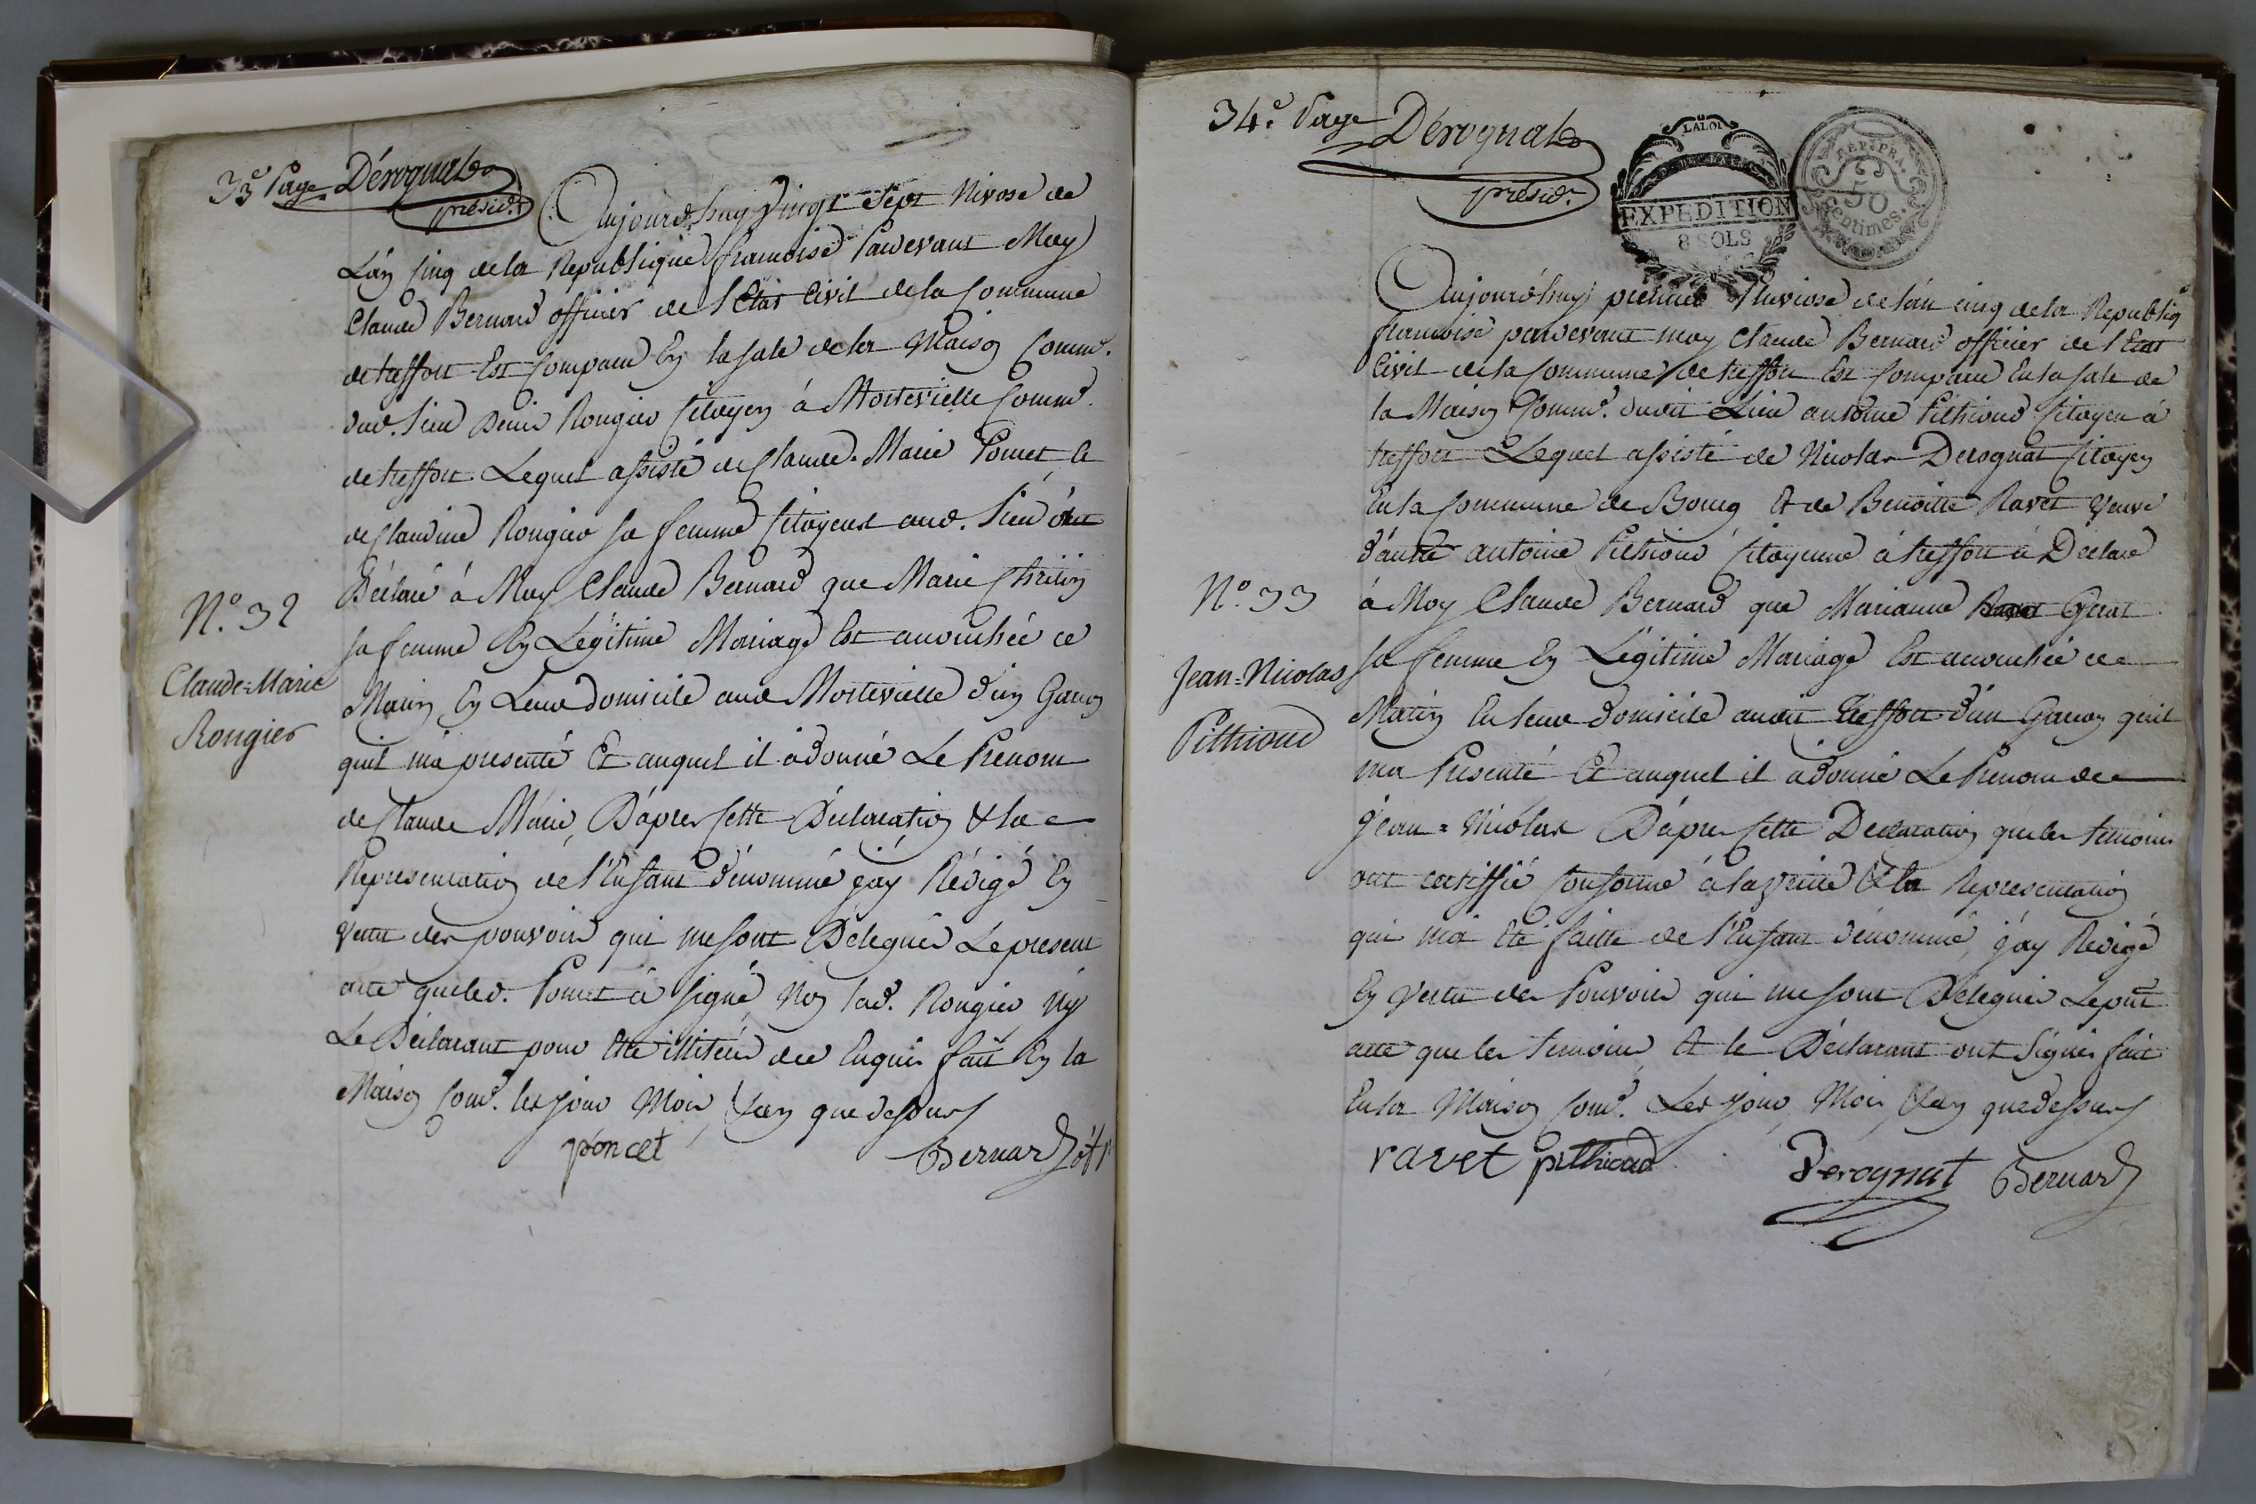 33e Page Dérognat
présid.t
Aujourd'huy Vingt Sept Nivose de
L'an Cinq de la Republique francoise Pardevant Moy
Claude Bernard officier de l'Etat Civil de la Commune
de treffort Est Comparu En la sale de la Maison Comm.e
dud. Lieu Denis Rougier Citoyen à Montevielle Comm.e
de treffort Lequel assisté de Claude-Marie Poncet Et
de Claudine Rougier sa femme Citoyens aud. Lieu ont
Déclaré à Moy Claude Bernard que Marie
sa femme En Légitime Mariage Est accouchée ce
Matin En Leur domicile aud Montevielle d'un Garcon
quil m'a presenté Et auquel il à donné Le Prenom
de Claude Marie, D'aprés Cette Déclaration & la
Representation de l'Enfant dénommé j'ay Rédigé En
Vertu des pouvoirs qui me sont Délégués Le present
acte que led. Poncet à signé Non lad. Rougier Ny
Le Déclarant pour Etre illitérés de ce Enquis fait En la
Maison Com.e les jour Mois & an que dessus
poncet Bernard off
N.o 32
Claude=Marie
Rougier
34e. Page Dérognat
présid.t
LA LOI
EXPEDITION
8 SOLS
REP. FRA.
50
centimes.
Aujourd'huy premier Pluviose de l'an cinq de la Republiq
francoise pardevant moy Claude Bernard officier de l'Etat
Civil de la Commune de treffort Est Comparu En la sale de
la Maison Comm.e dudit Lieu antoine Pithioud Citoyen à
treffort Lequel assisté de Nicolas Derognat Citoyen
En la Commune de Bourg Et de Benoitte Ravet Veuve
d'autre antoine Pithioud Citoyenne à treffort à Déclaré
à Moy Claude Bernard que Marianne
sa femme En Légitime Mariage Est accouchée ce
Matin En Leur domicile audit Treffort d'un Garcon quil
ma Présenté Et auquel il à donné Le Prenom de
Jean=Nicolas D'aprés Cette Déclaration que les temoins
ont certiffié Conforme à la vérité & la Representation
qui m'a été faitte de l'Enfant dénommé, j'ay Rédigé
En Vertu des Pouvoirs qui me sont Délégués Le pnt
acte que les temoins Et le Déclarant ont Signés fait
En la Maison Com.e Les jour, Mois & an que dessus
ravet pithioud Derognat Bernard
N.o 33
Jean=Nicolas
Pithioud